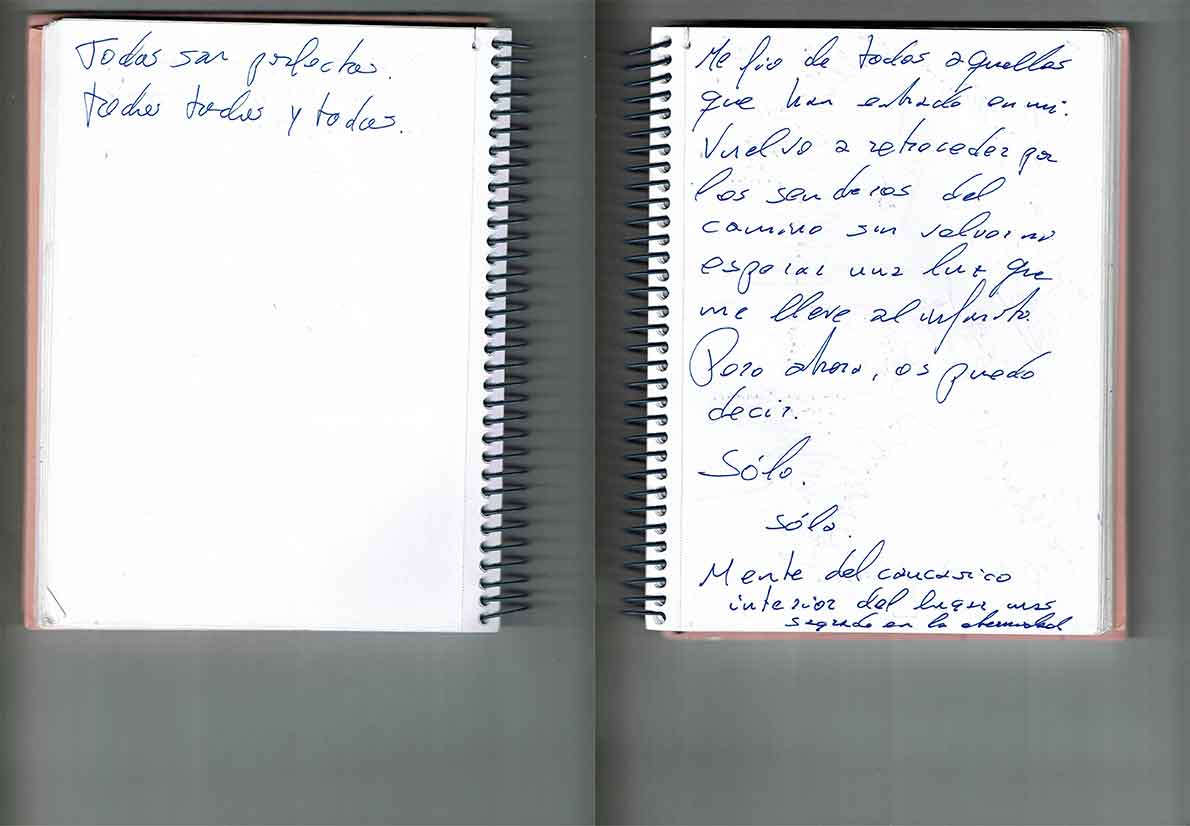 Todas son perfectas.
todas todas y todas.
Me fio de todas aquellas
que han entrado en mi.
Vuelvo a retroceder por
los senderos del
camino sin volver a
esperar una luz que
me lleve al infinito.
Pero ahora, os puedo
decir.
Sólo.
sólo.
Mente del caucasico
interior del lugar mas
sagrado en la eternidad